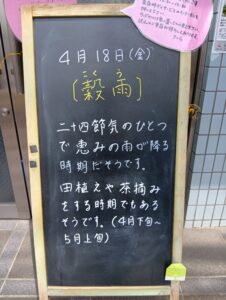 4月18日(金)
こく う
〔穀雨〕
二十四節気のひとつ
で恵みの雨が降る
時期だそうです。
田植えや茶摘み
をする時期でもある
そうです。(4月下旬〜
5月上旬)